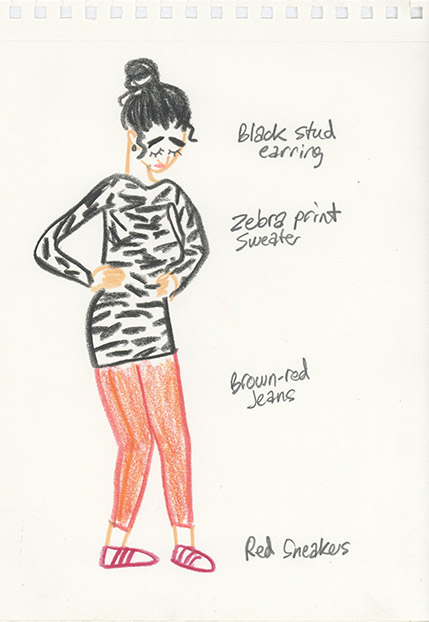 Black stud
earring
Zebra print
Sweater
Brown-red
Jeans
Red Sneakers